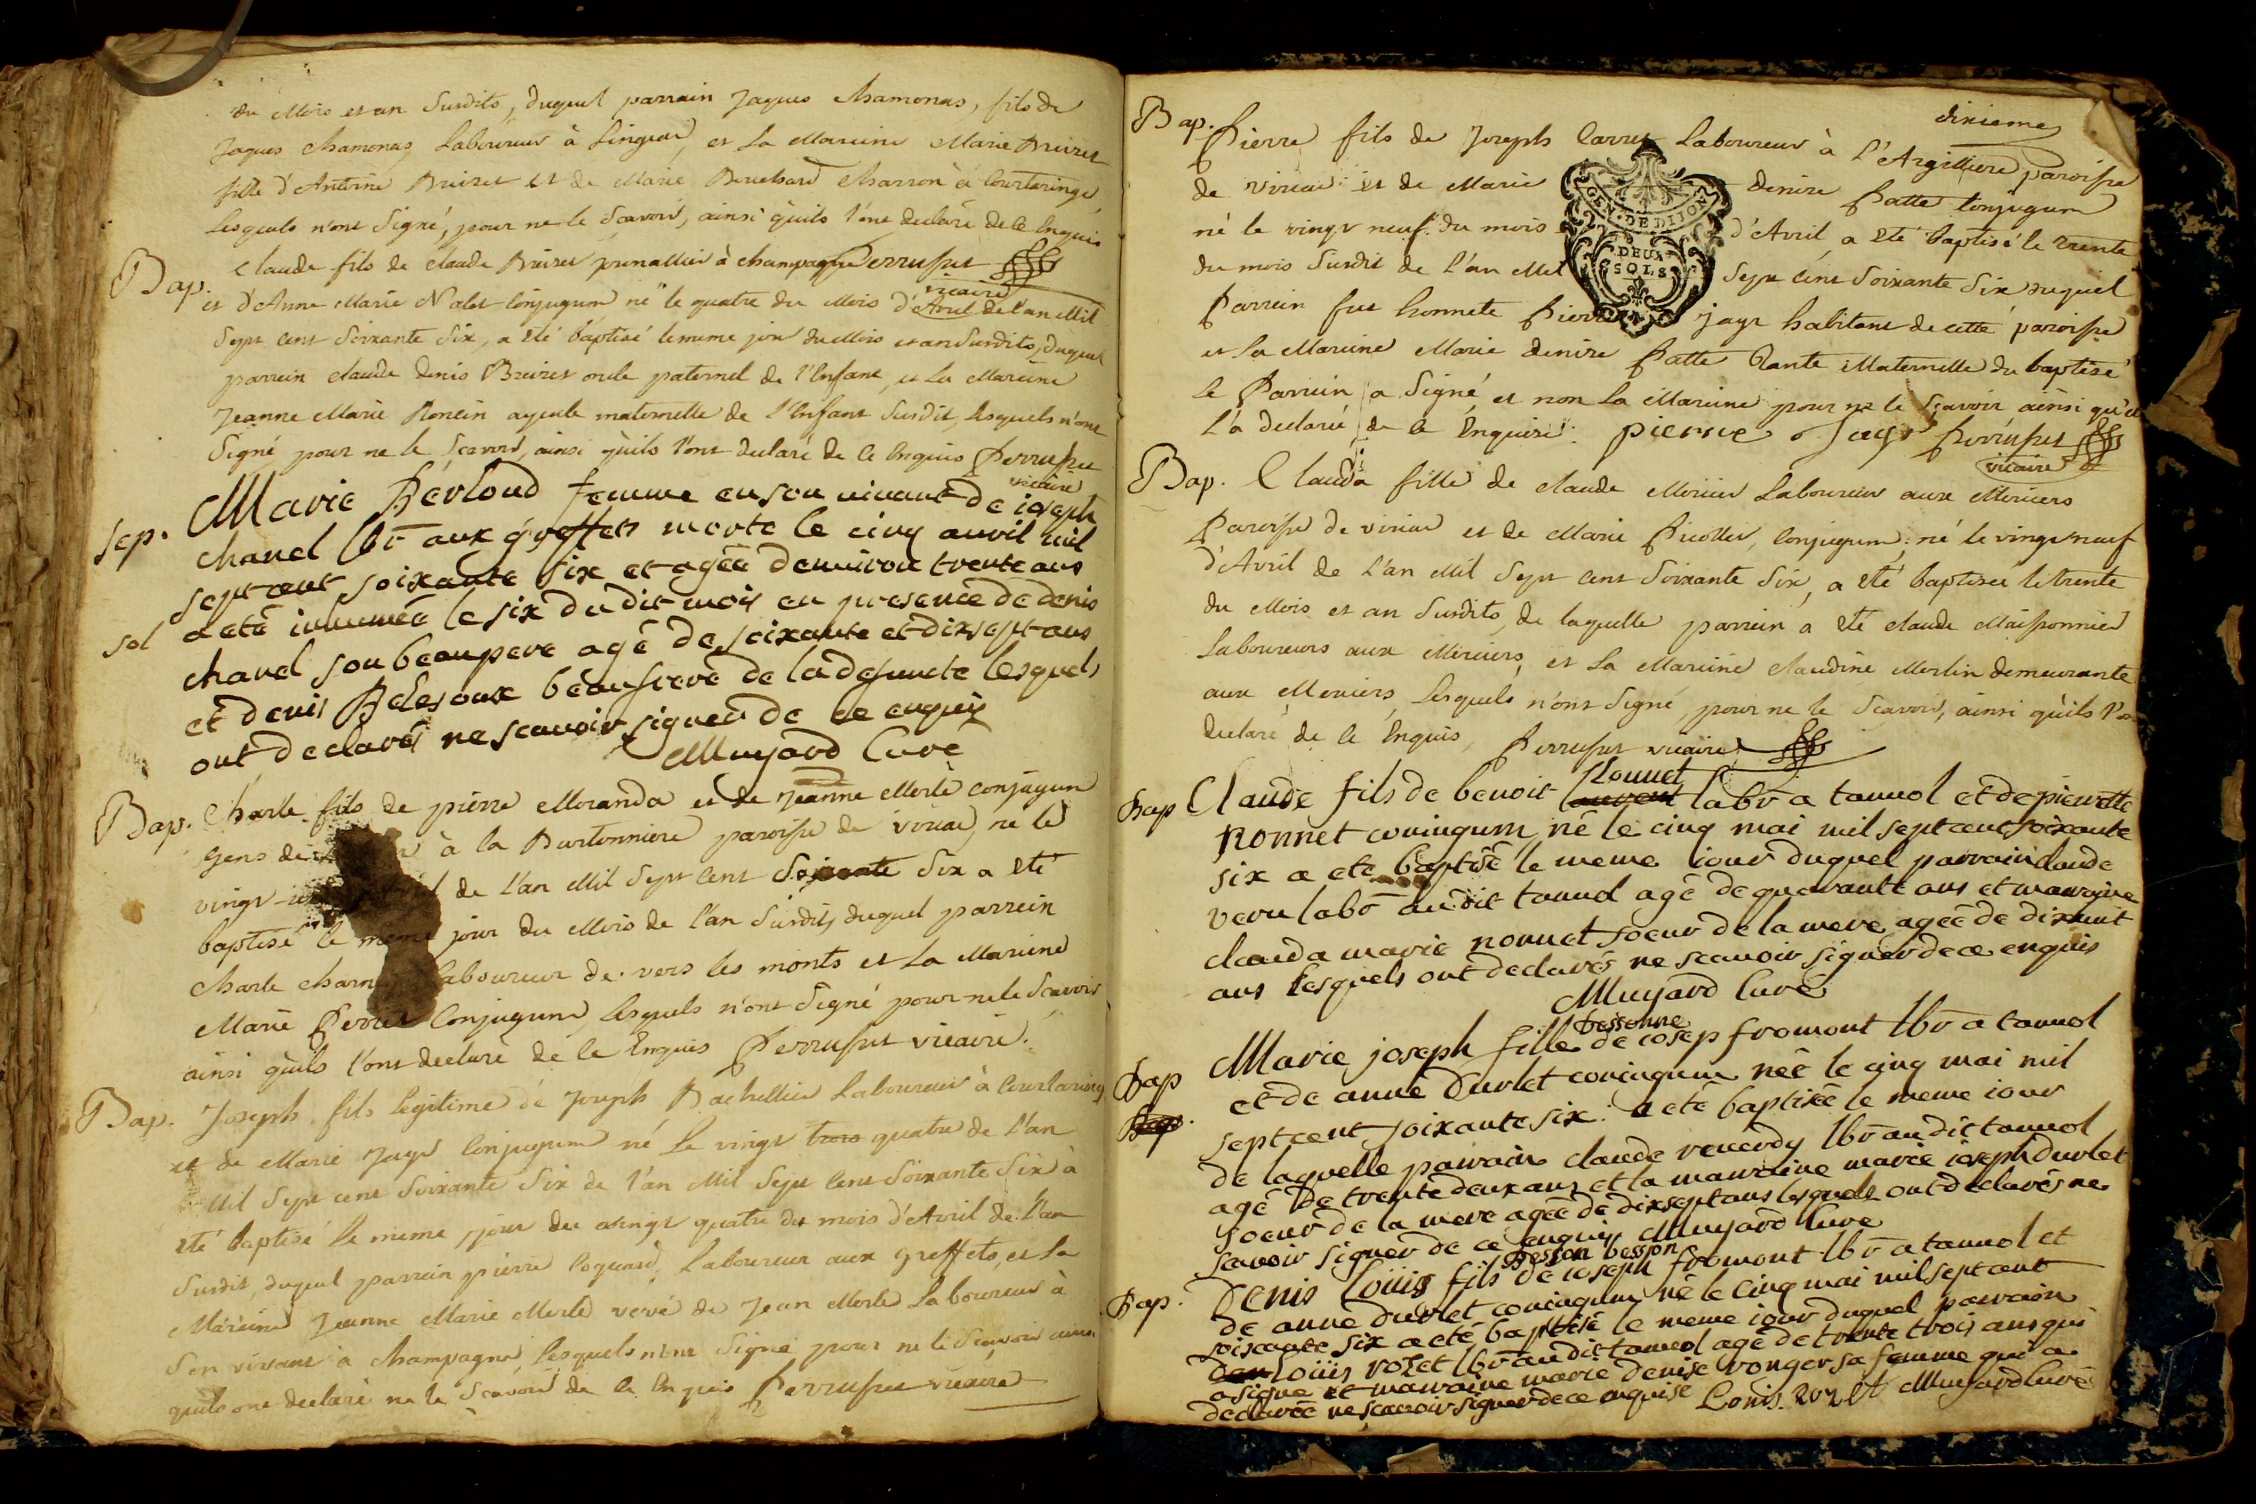 du Mois et an Susdits, duquel parrain Jaques Chamonas, fils de
Jaques Chamonas Laboureur à Lingeat, et La Mareine Marie Brevet
fille d'Antoine Brevet et de Marie Bouchard charron à Courtaringe
Lesquels n'ont Signé, pour ne le Scavoir, ainsi qu'ils l'ont declaré de ce Enquis
Perruset
vicaire
Bap. Claude fils de claude Brevet à champagne
et d'Anne Marie Nalet Conjugum né le quatre du Mois d'Avril de l'an Mil
Sept cent Soixante Six, a eté baptisé le meme jour du Mois et an Susdits, Duquel
parrein claude denis Brevet oncle paternel de l'Enfant, et La Mareine
Jeanne Marie Roncin ayeule maternelle de l'Enfant Susdit, lesquels n'ont
Signé pour ne le Scavoir, ainsi qu'ils l'ont declaré de ce Enquis Perruset
vicaire
Sep. Marie Berloud femme en son vivant de ioseph
chanel lbr aux greffets morte le cinq auril mil
sept cent soixante six et agée denuiron trente ans
sol a eté inhumée le six du dit mois en presence de denis
chanel son beaupere agé de soixante et dix sept ans
et denis Belesoux beaufrere de la defuncte lesquels
ont declarés ne scauoir signer de ce enquis
Muyard Curé
Bap. Charle fils de pierre Moranda et de Jeanne Merle conjugum
gens de à la Burtonniere paroisse de viriac, né le
vingt de L'an Mil Sept Cent Soixante Six a eté
baptisé le meme jour du Mois de l'an Susdits, duquel parrein
charle Laboureur de vers les monts et La Mareine
Marie Conjugum, Lesquels n'ont Signé pour ne le Scavoir
ainsi qu'ils l'ont declaré de ce Enquis Perruset vicaire.
Bap. Joseph fils legitime de Joseph Bachellier Laboureur à Courtaringe
et de Marie Jayr Conjugum né Le vingt trois quatre de L'an
Mil Sept cent Soixante Six de l'an Mil Sept Cent Soixante Six à
eté baptisé le meme jour du vingt quatre du mois d'Avril de L'an
Susdit, duquel parrein pierre Coquard, Laboureur aux greffets, et La
Mareine Jeanne Marie Merle veve de Jean Merle Laboureur à
Son vivant à champagne, Lesquels n'ont Signé pour ne le Scavoir ainsi
qu'ils ont declaré ne le Scavoir de ce Enquis Perruset vicaire
dixieme
Bap. Pierre fils de Joseph Carru Laboureur à L'Argilliere paroisse
de viriac et de Marie denise Patte Conjugum
né le vingt neuf du mois d'Avril, a eté baptisé le trente
du mois Susdit de L'an Mil Sept cent Soixante Six duquel
Parrein fut honnete Pierre jayr habitant de cette paroisse
et La Mareine Marie denise Patte Tante Maternelle du baptisé
le Parrein a Signé, et non La Mareine pour ne le Scavoir ainsi qu'elle
L'a declaré de ce Enquise. pierre Jayr Perruset
vicaire
GEN. DE DIJON
DEUX
SOLS
Bap. Clauda fille de claude Mercier Laboureur aux Merciers
Paroisse de viriac et de Marie Picollet, Conjugum: né le vingt neuf
d'Avril de L'an Mil Sept Cent Soixante Six, a eté baptisée le trente
du Mois et an Susdits, de laquelle parrein a eté claude Maisonnier
Laboureurs aux Merciers, et La Mareine claudine Merlin demeurante
aux Merciers, Lesquels n'ont Signé, pour ne le Scavoir, ainsi qu'ils l'ont
declaré de ce Enquis, Perruset vicaire
Bap Claude fils de benoit Nonnet labr a tannol et de pierrette
nonnet coniugum, né le cinq mai mil sept cent soixante
six a eté baptisé le meme iour duquel parrain claude
veru labr audit tannol agé de quarante ans et marraine
clauda marie nonnet soeur de la mere agée de dix huit
ans lesquels ont declarés ne scauoir signer de ce enquis
Muyard Curé
bessonne
Bap Marie joseph fille de iosep fromont lbr a tannol
et de anne Durlet coniugum née le cinq mai mil
Bap. sept cent soixante six: a eté baptisée le meme iour
de laquelle parrain claude reuerdy lbr audit tannol
agé de trente deux ans et la marraine marie ioseph Durlet
soeur de la mere agée de dix sept ans lesquels ont declarés ne
scauoir signer de ce enquis Muyard Curé
besson besson
Bap. Denis Louis fils de ioseph fromont lbr a tannol et
de anne durlet coniugum né le cinq mai mil sept cent
soixante six a eté baptisé le meme iour duquel parrain
Louis rozet lbr audit tannol agé de trente trois ans qui
a signé et marraine marie denise ronger sa femme qui a
declarée ne scauoir signer de ce enquise Louis rozet Muyard Curé